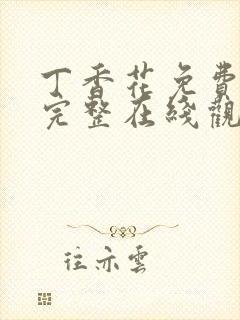 丁香花免費
完整在綫觀
往亦雲